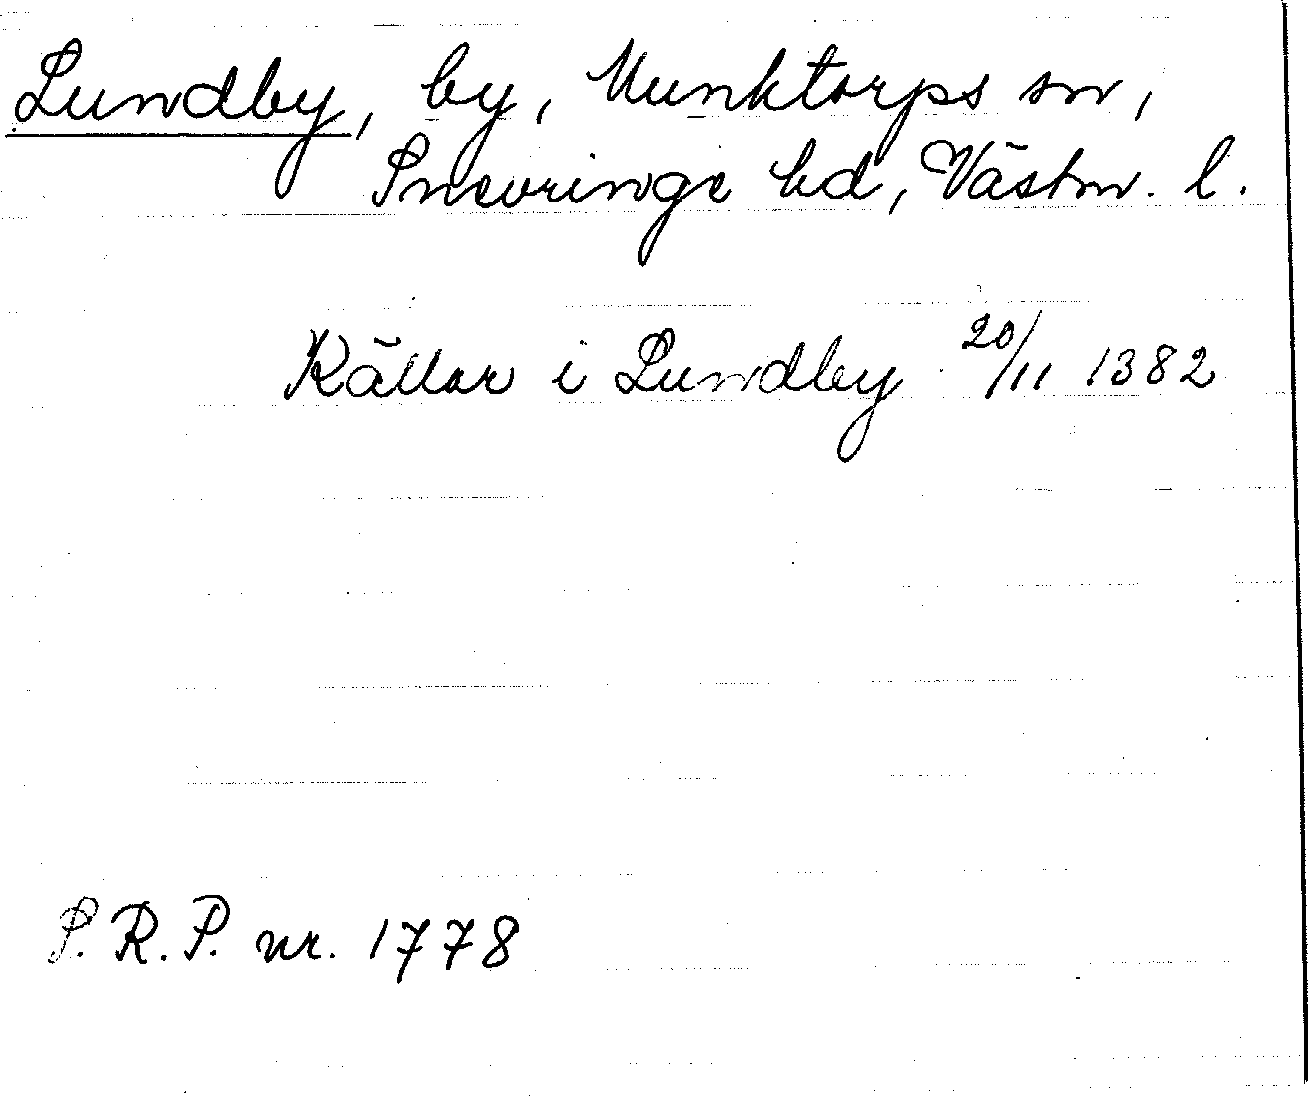 Lundby, by, Munktorps sn,
Snevringe hd, Västm. l.
Källar i Lundby 20/11 1382
S.R.P. nr. 1778